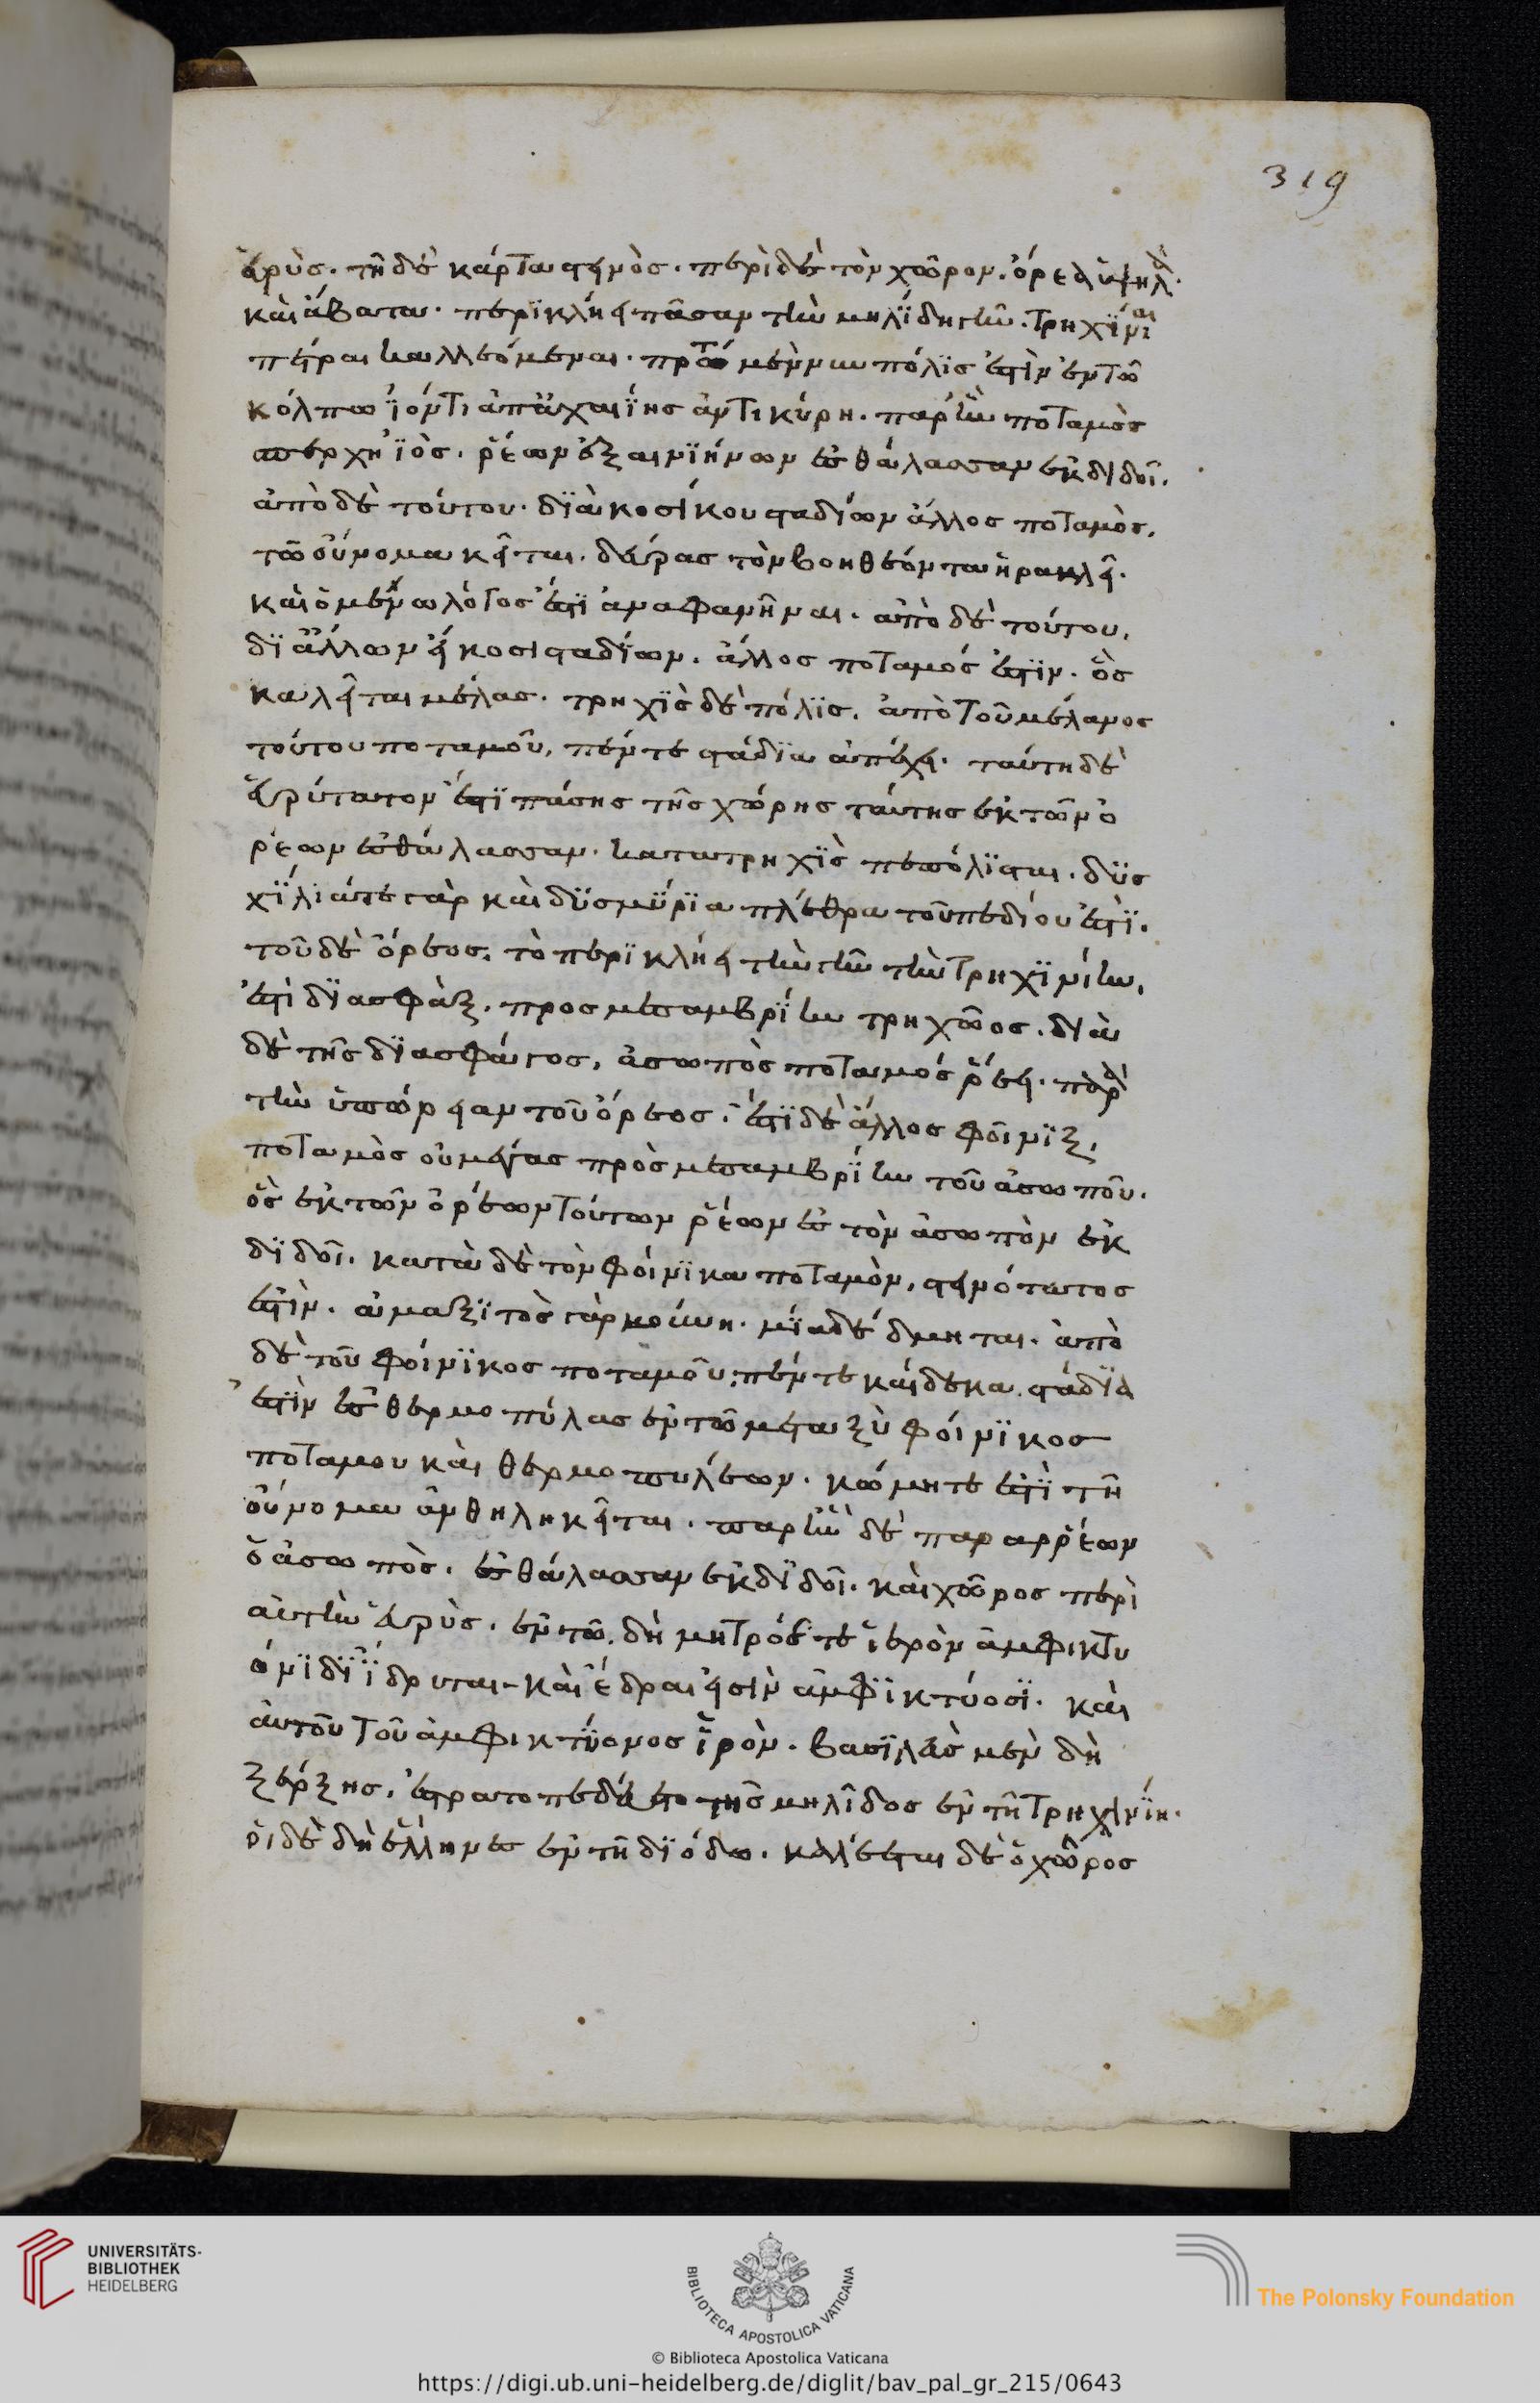 319
εὐρὺς. τῆ δὲ κάρτα στεινὸς. περὶ δὲ τὸν χῶρον. ὄρεα ὑψηλὰ.
καὶ ἄβατα. περϊκλήει πᾶσαν τὴν μηλΐδη γῆν. Τρηχΐνιαι
πέτραι καλλεόμεναι. πρῶτον μέν νυν πόλϊς ἐστὶν ἐν τῶ
κόλπω ϊόντι ἀπ' ἀχαιΐης ἀντικύρη. παρ' ἣν ποταμὸς
σπερχηϊὸς. ῥέων ἐξ αινϊήνων ἐς θάλασσαν ἐκδιδοῖ.
ἀπὸ δὲ τούτου. δϊὰ κοσίκου σταδίων ἄλλος ποταμὸς.
τῶ οὔνομα κεῖται. δύρας τὸν βοηθέοντα ἡρακλεῖ.
καὶομένω λόγος ἐστϊ ἀναφανῆναι. ἀπὸ δὲ τούτου.
δϊ ἄλλων εἴκοσι σταδΐων. ἄλλος ποταμός ἐστϊν. ὃς
καλεῖται μέλας. τρηχῒς δὲ πόλϊς. ἀπὸ τοῦ μέλανος
τούτου ποταμοῦ, πέντε στάδϊα ἀπέχει. ταύτη δὲ
εὐρύτατον ἐστϊ πάσης τῆς χώρης ταύτης ἐκ τῶν ὀ
ρέων ἐς θάλασσαν. κατα τρηχῒς πεπόλϊσται. δϋσ
χΐλιάτε γὰρ καὶ δϋσμΰρϊα πλέθρα τοῦ πεδίου ἐστῒ.
τοῦ δὲ ὄρεος. τὸ περϊκλήει τὴν γῆν τὴν Τρηχϊνίην.
ἐστὶ δϊασφὰξ. προς μεσαμβρΐην τρηχῖνος. διὰ
δὲ τῆς δϊασφάγος, ἀσωπὸς ποταμός ῥέει. παρὰ
τὴν ὑπώρειαν τοῦ ὄρεος. ἔστϊ δὲ ἄλλος φοῖνϊξ.
ποταμὸς οὐ μέγας πρὸς μεσαμβρΐην τοῦ ἀσωποῦ.
ὃς ἐκ τῶν ὀρέων τούτων ῥέων ἐς τὸν ἀσωπὸν ἐκ
δϊδοῖ. κατὰ δὲ τὸν φοίνϊκα ποταμὸν, στεινότατος
ἐστὶν. ἀμαξϊτὸς γὰρ μούνη. μΐα δέδμηται. ἀπὸ
δὲ τοῦ φοίνϊκος ποταμοῦ, πέντε καίδεκα. στάδϊα
ἐστῒν ἐς θερμοπύλας ἐν τῶ μεταξὺ φοίνϊκος
ποταμου καὶ θερμοπυλέων. κώμη τε ἐστῒ τῆ
οὔνομα ἀνθήλη κεῖται. παρ' ἣν δὲ παραρρέων
ὁ ἀσωπὸς. ἐς θάλασσαν ἐκδϊδοῖ. καὶ χῶρος περὶ
αὐτὴν εὐρὺς. ἐν τῶ. δὴ μητρός τε ἱερὸν ἀμφικτυ
όνϊδϊ ΐδρυται. καὶ ἕδραι εἰσὶν ἀμφϊκτύοσϊ. καὶ
αὐτοῦ τοῦ ἀμφικτΰονος ἱρὸν. βασϊλεὺς μὲν δὴ
ξέρξης. ἐστρατοπεδεύετο τῆς μηλῖδος ἐν τῆ Τρηχινΐη.
οἱ δὲ δὴ ἕλληνες ἐν τῆ δϊόδω. καλέεται δὲ ὁ χῶρος
UNIVERSITÄTS-
BIBLIOTHEK
HEIDELBERG
BIBLIOTECA APOSTOLICA VATICANA
The Polonsky Foundation
© Biblioteca Apostolica Vaticana
https://digi.ub.uni-heidelberg.de/diglit/bav_pal_gr_215/0643